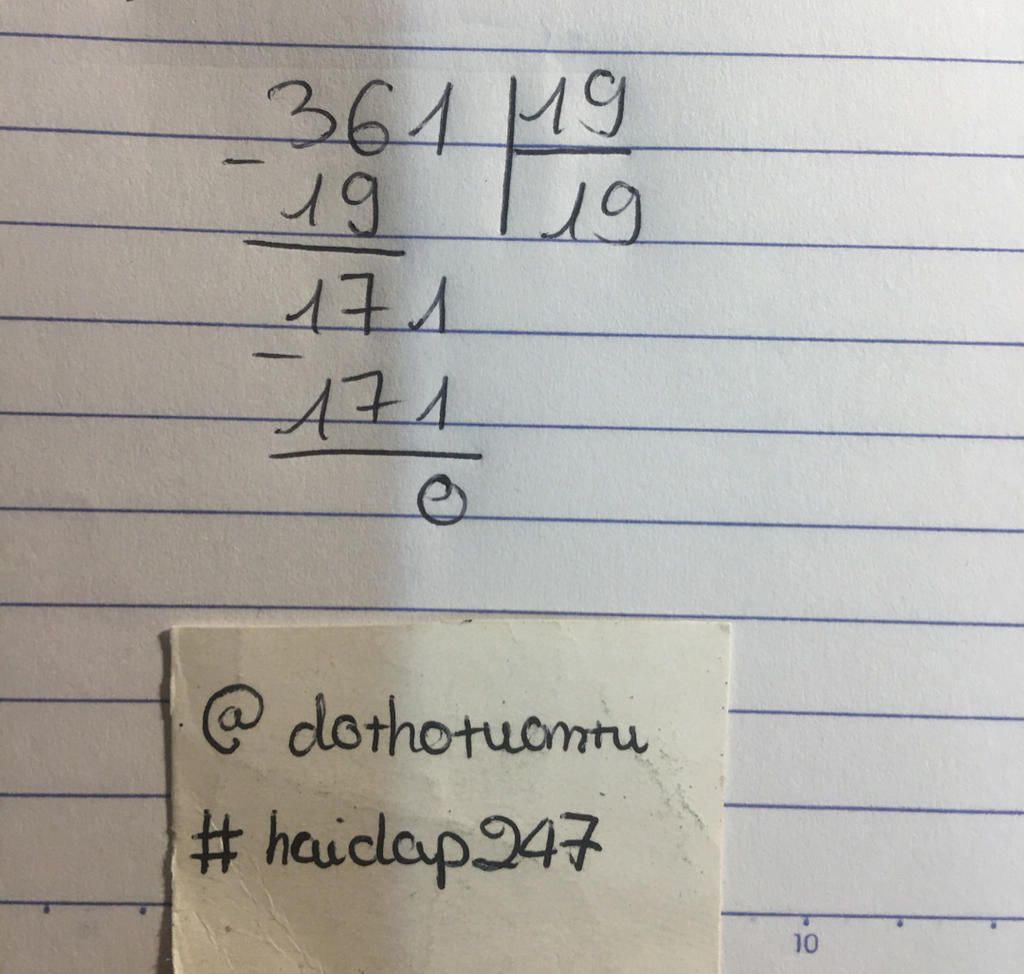 361 | 19
- 19 19
171
- 171
0
@ dothotuamtu
# haidap247
10